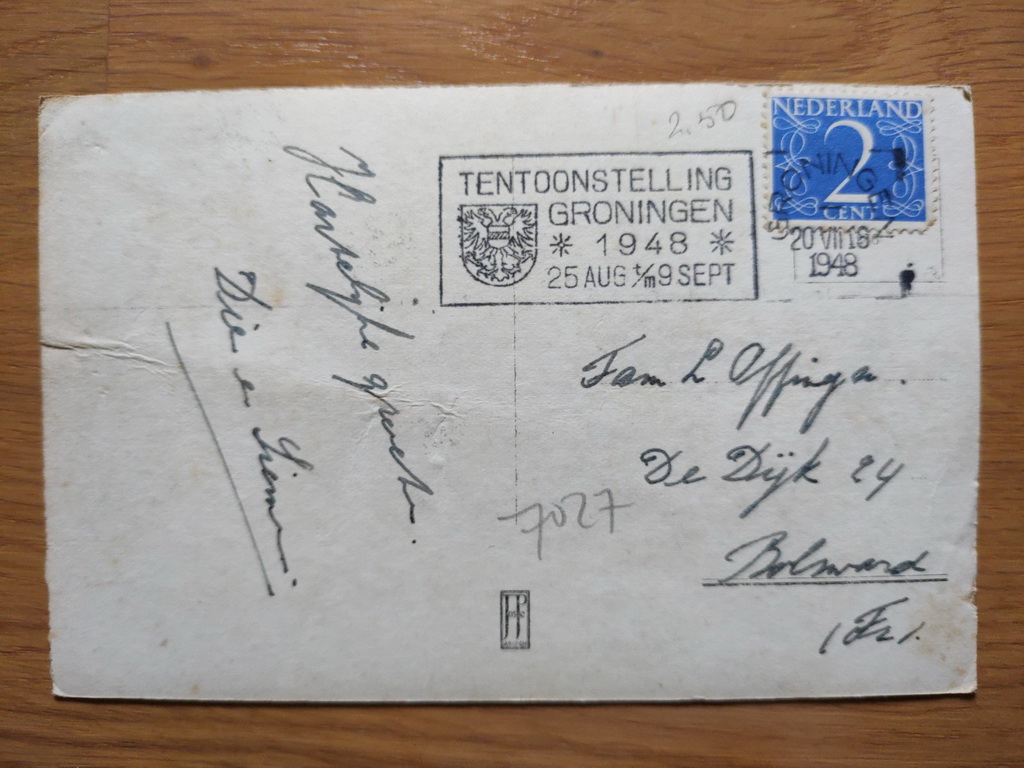 2.50
NEDERLAND
2
CENT
GRONINGEN
20 VII 18
1948
TENTOONSTELLING
GRONINGEN
* 1948 *
25 AUG t/m 9 SEPT
Hartelijke groeten.
Die en Siemen
Fam L Offinga.
De Dijk 24
Bolsward
(Fr).
7027
JP